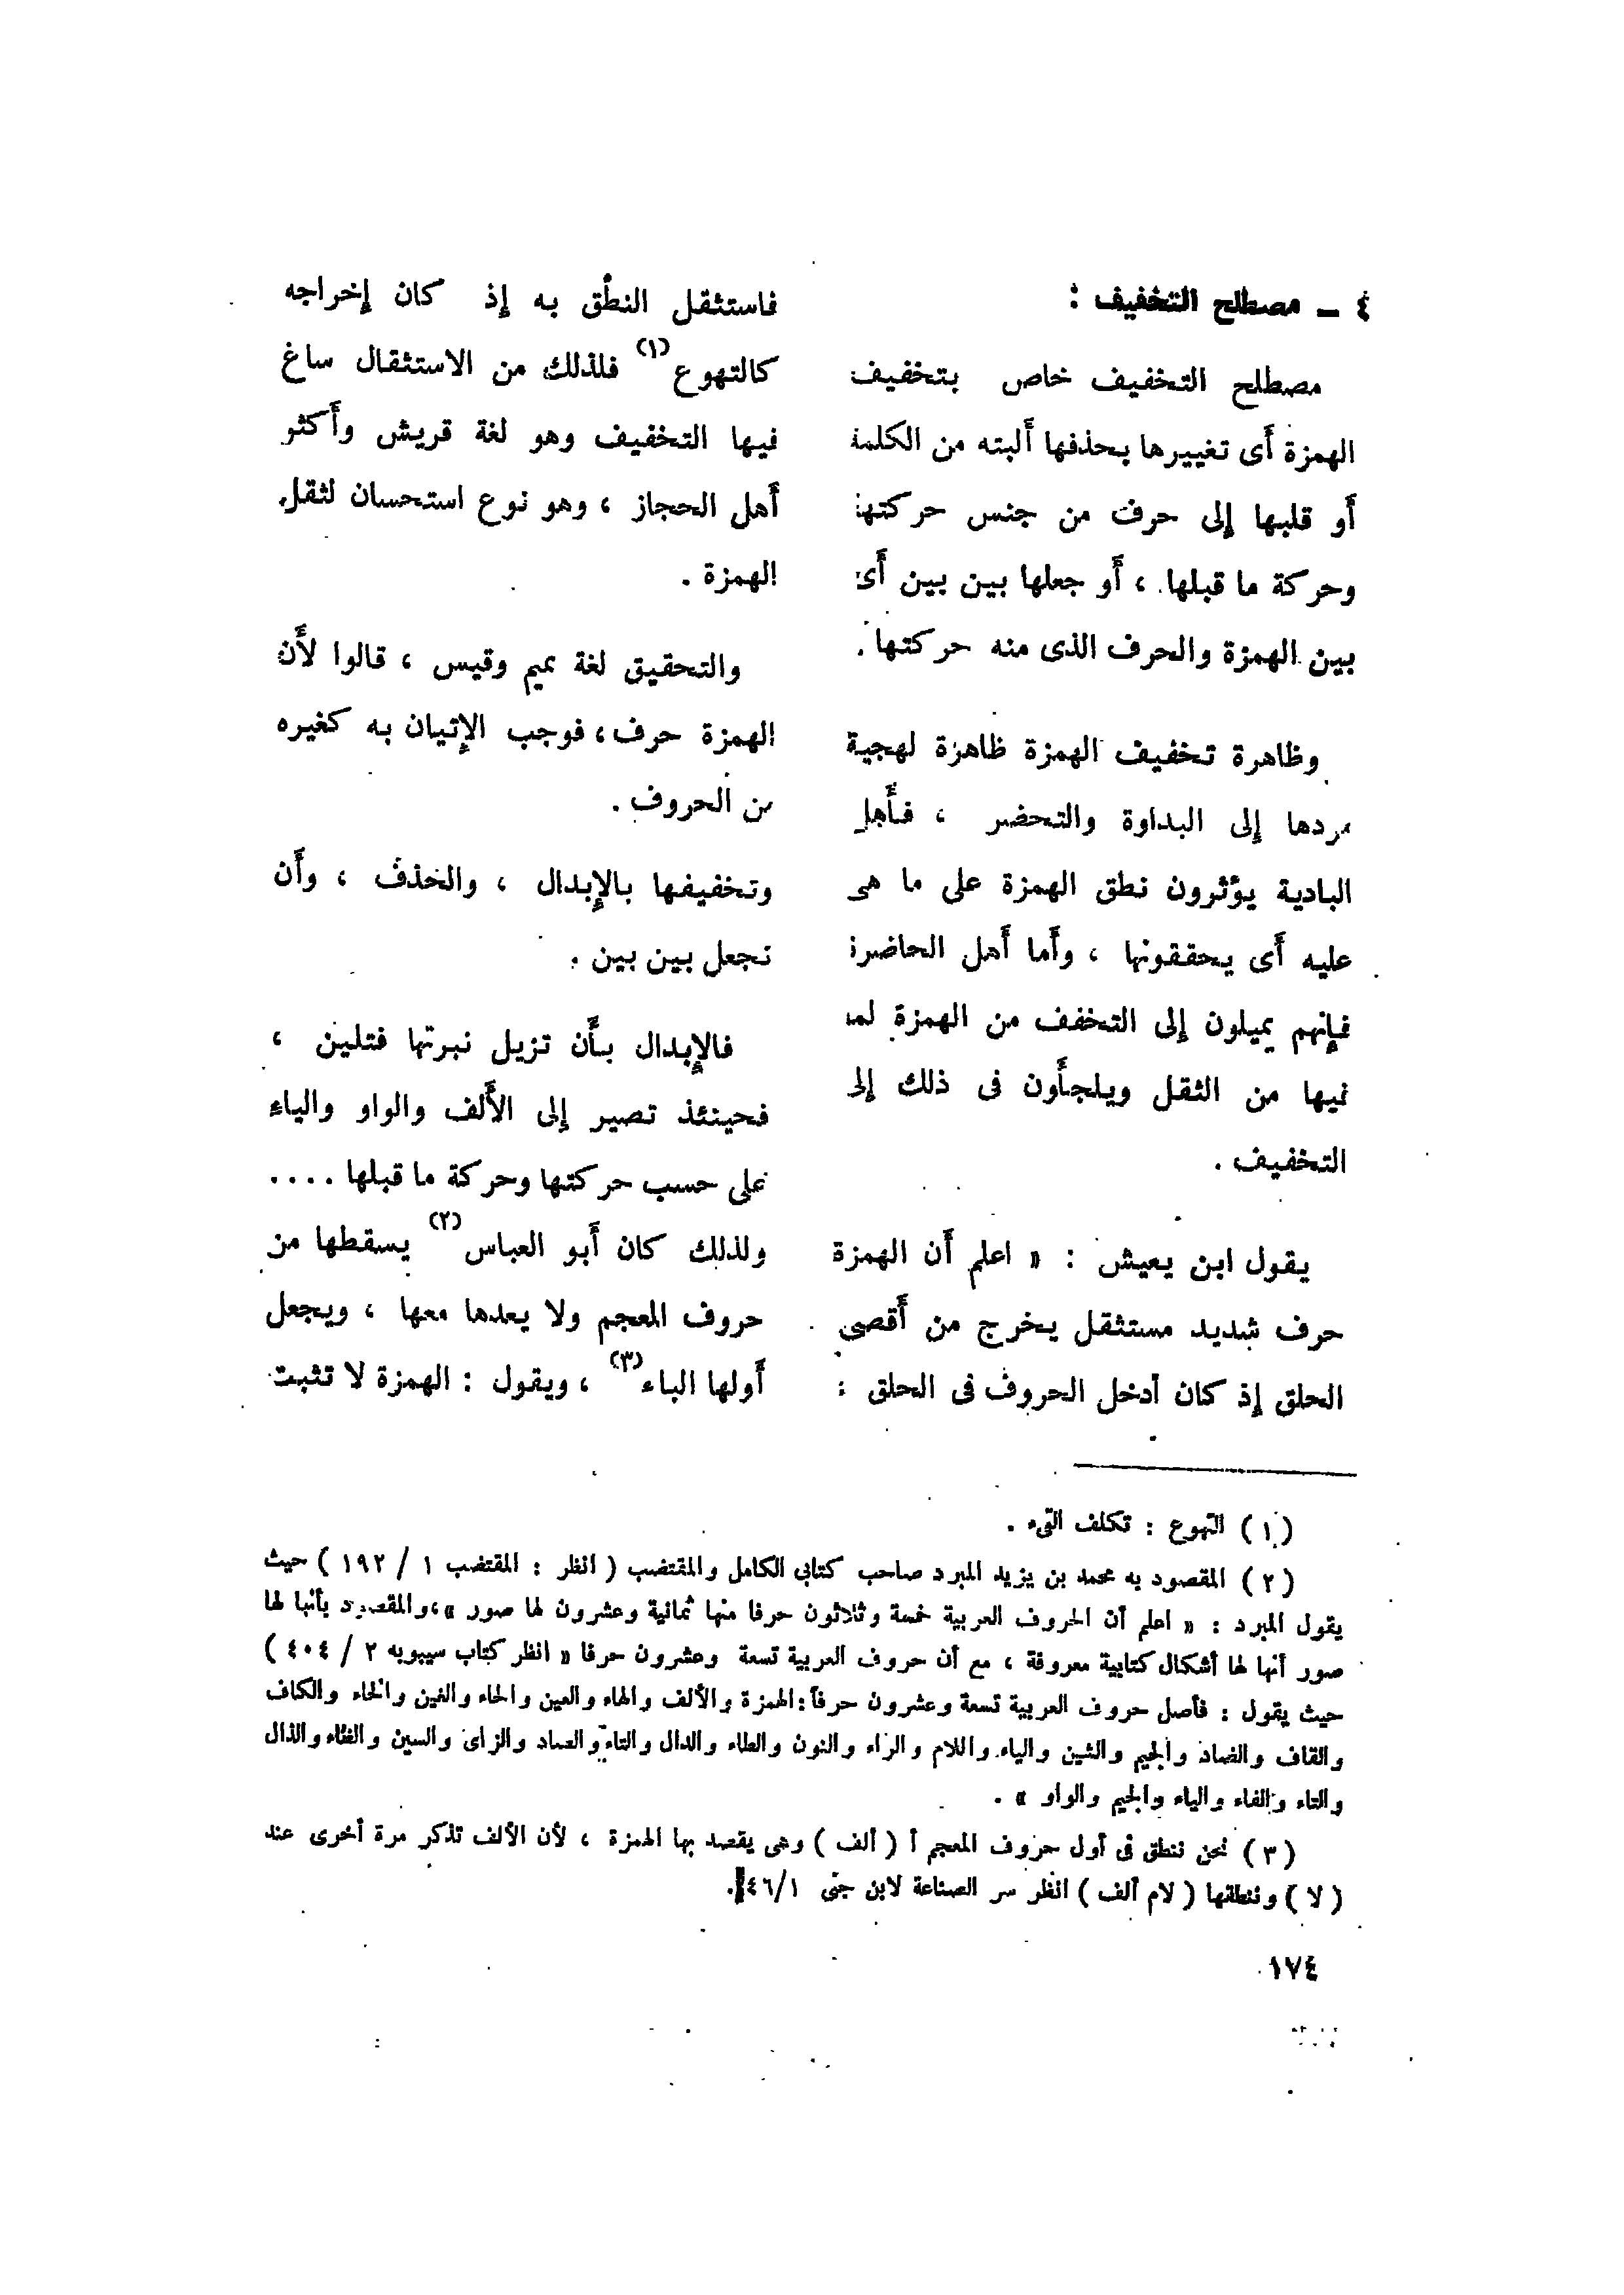 ٤ – مصطلح التخفيف :
مصطلح التخفيف خاص بتخفيف
الهمزة أى تغييرها بحذفها ألبته من الكلمة
أو قلبها إلى حرف من جنس حركتها
وحركة ما قبلها ، أو جعلها بين بين أى
بين الهمزة والحرف الذى منه حركتها .
وظاهرة تخفيف الهمزة ظاهرة لهجية
مردها إلى البداوة والتحضر ، فأهل
البادية يؤثرون نطق الهمزة على ما هى
عليه أى يحققونها ، وأما أهل الحاضرة
فإنهم يميلون إلى التخفف من الهمزة لما
فيها من الثقل ويلجأون فى ذلك إلى
التخفيف .
يقول ابن يعيش : « اعلم أن الهمزة
حرف شديد مستثقل يخرج من أقصى
الحلق إذ كان أدخل الحروف فى الحلق :
فاستثقل النطق به إذ كان إخراجه
كالتهوع (١) فلذلك من الاستثقال ساغ
فيها التخفيف وهو لغة قريش وأكثر
أهل الحجاز ، وهو نوع استحسان لثقل
الهمزة .
والتحقيق لغة تميم وقيس ، قالوا لأن
الهمزة حرف ، فوجب الإتيان به كغيره
من الحروف .
وتخفيفها بالإبدال ، والحذف ، وأن
تجعل بين بين .
فالإبدال بأن تزيل نبرتها فتلين ،
فحينئذ تصير إلى الألف والواو والياء
على حسب حركتها وحركة ما قبلها ....
ولذلك كان أبو العباس (٢) يسقطها من
حروف المعجم ولا يعدها معها ، ويجعل
أولها الباء (٣) ، ويقول : الهمزة لا تثبت
(١) التهوع : تكلف القىء .
(٢) المقصود به محمد بن يزيد المبرد صاحب كتابى الكامل والمقتضب ( انظر : المقتضب ١ / ١٩٢ ) حيث
يقول المبرد : « اعلم أن الحروف العربية خمسة وثلاثون حرفا منها ثمانية وعشرون لها صور » ، والمقصود بأنها لها
صور أنها لها أشكال كتابية معروفة ، مع أن حروف العربية تسعة وعشرون حرفا « انظر كتاب سيبويه ٢ / ٤٠٤ )
حيث يقول : فأصل حروف العربية تسعة وعشرون حرفاً : الهمزة والألف والهاء والعين والحاء والغين والخاء والكاف
والقاف والضاد والجيم والشين والياء واللام والراء والنون والطاء والدال والتاء والصاد والزاى والسين والظاء والذال
والثاء والفاء والباء والجيم والواو » .
(٣) نحن ننطق فى أول حروف المعجم أ ( ألف ) وهى يقصد بها الهمزة ، لأن الألف تذكر مرة أخرى عند
( لا ) وننطقها ( لام ألف ) انظر سر الصناعة لابن جنى ١/٤٦.
١٧٤